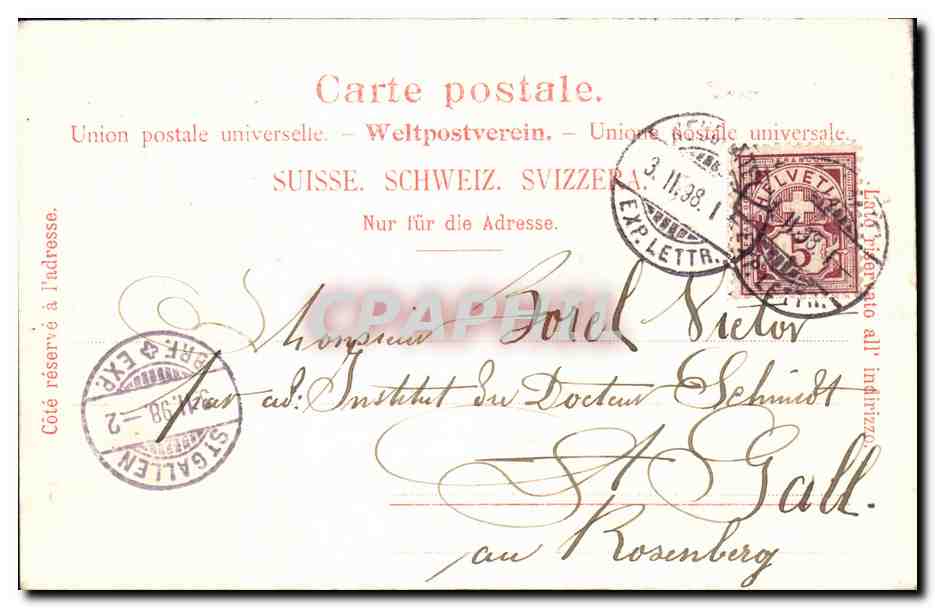 Carte postale.
Union postale universelle. – Weltpostverein. – Unione postale universale.
SUISSE. SCHWEIZ. SVIZZERA.
Nur für die Adresse.
Côté réservé à l'adresse.
Lato riservato all' indirizzo.
3. II. 98. I
EXP. LETTR.
FRANCO
HELVETIA
5
II. 98. I
LETTR.
CPAPHIL
Monsieur Borel Victor
par ad: Institut du Docteur Schmidt
St Gall.
au Rosenberg
BRF. EXP.
II. 98. – 2
ST. GALLEN